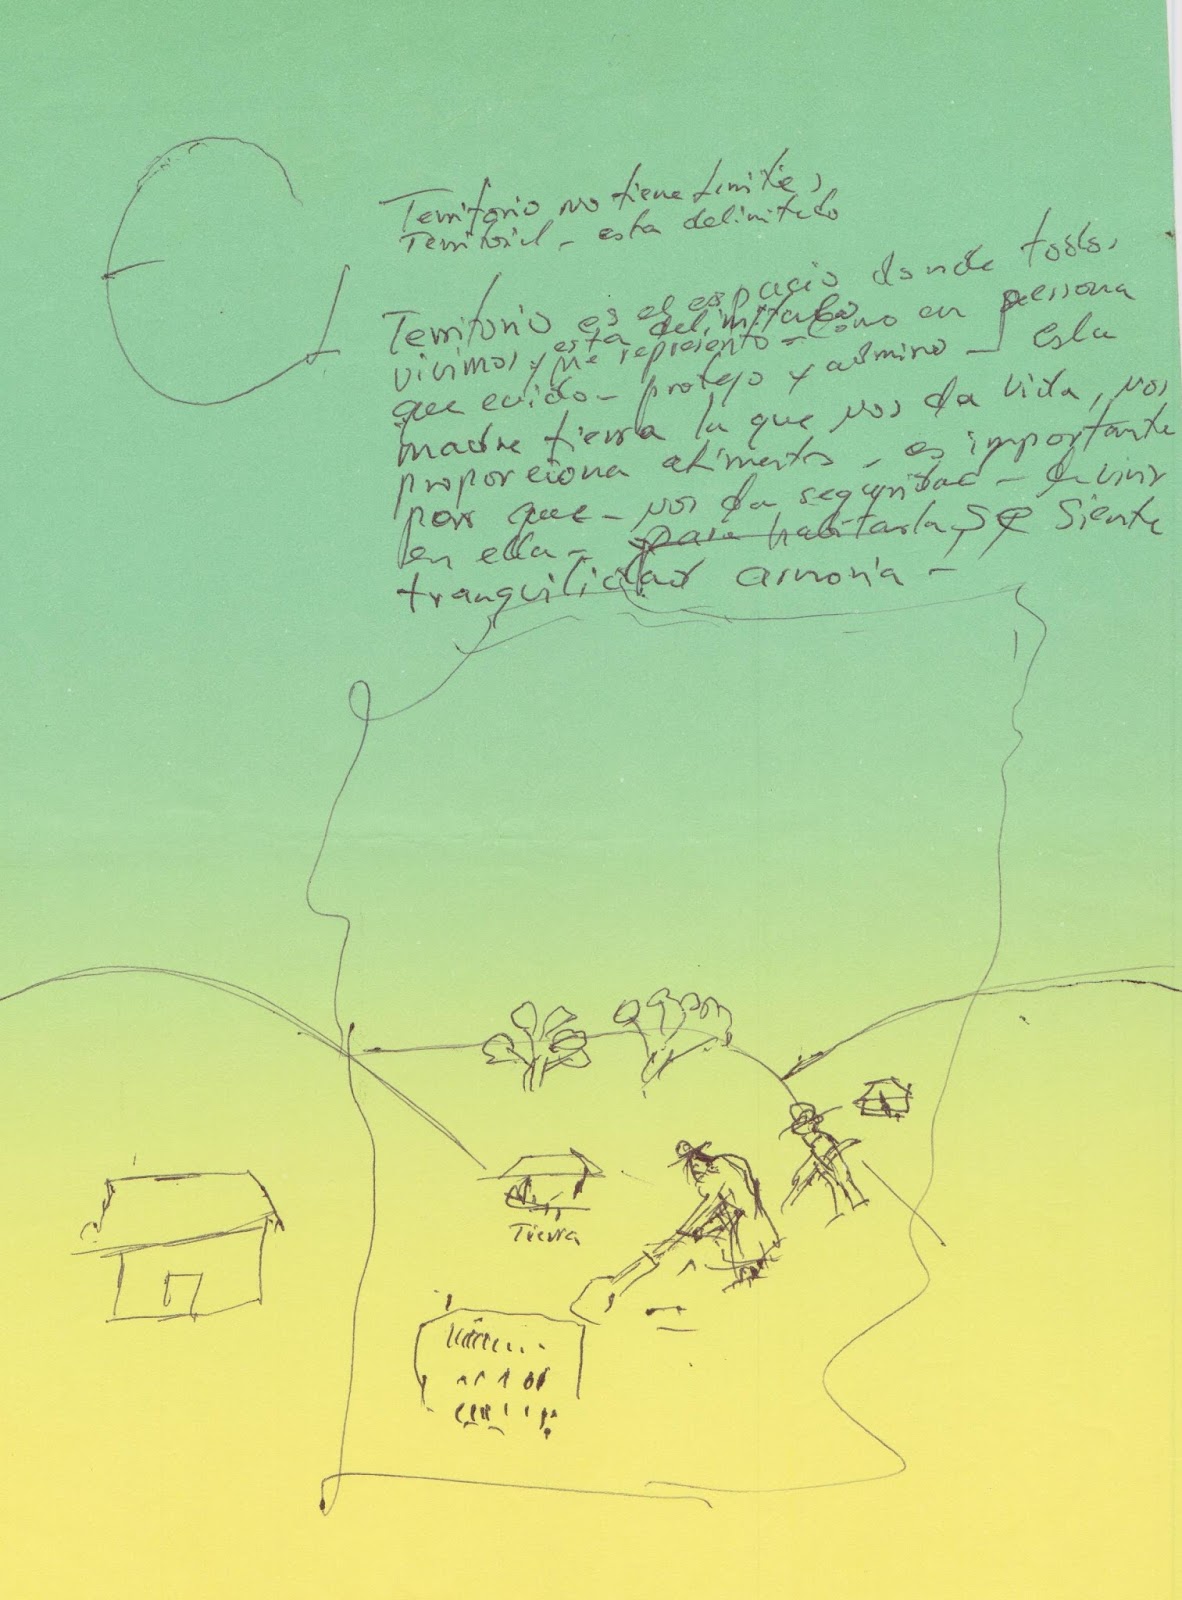 Territorio no tiene limites
Territorial - esta delimitado
Territorio es el espacio donde todos
esta delimitado
vivimos y me represento - como en persona
que cuido - protejo y admino - esta
madre tierra la que nos da vida, nos
proporciona alimentos - es importante
por que - nos da seguridad - de vivir
en ella - para habitarla, se siente
tranquilidad armonia -
Tierra